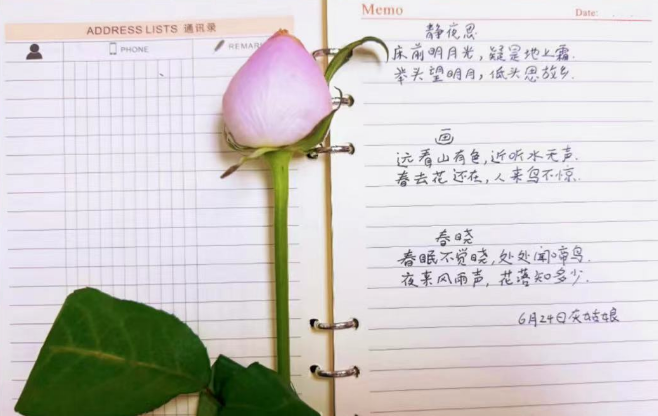 ADDRESS LISTS 通讯录
PHONE
REMARK
Memo
Date:
静夜思
床前明月光，疑是地上霜.
举头望明月，低头思故乡.
画
远看山有色，近听水无声.
春去花还在，人来鸟不惊.
春晓
春眠不觉晓，处处闻啼鸟.
夜来风雨声，花落知多少.
6月24日灰姑娘